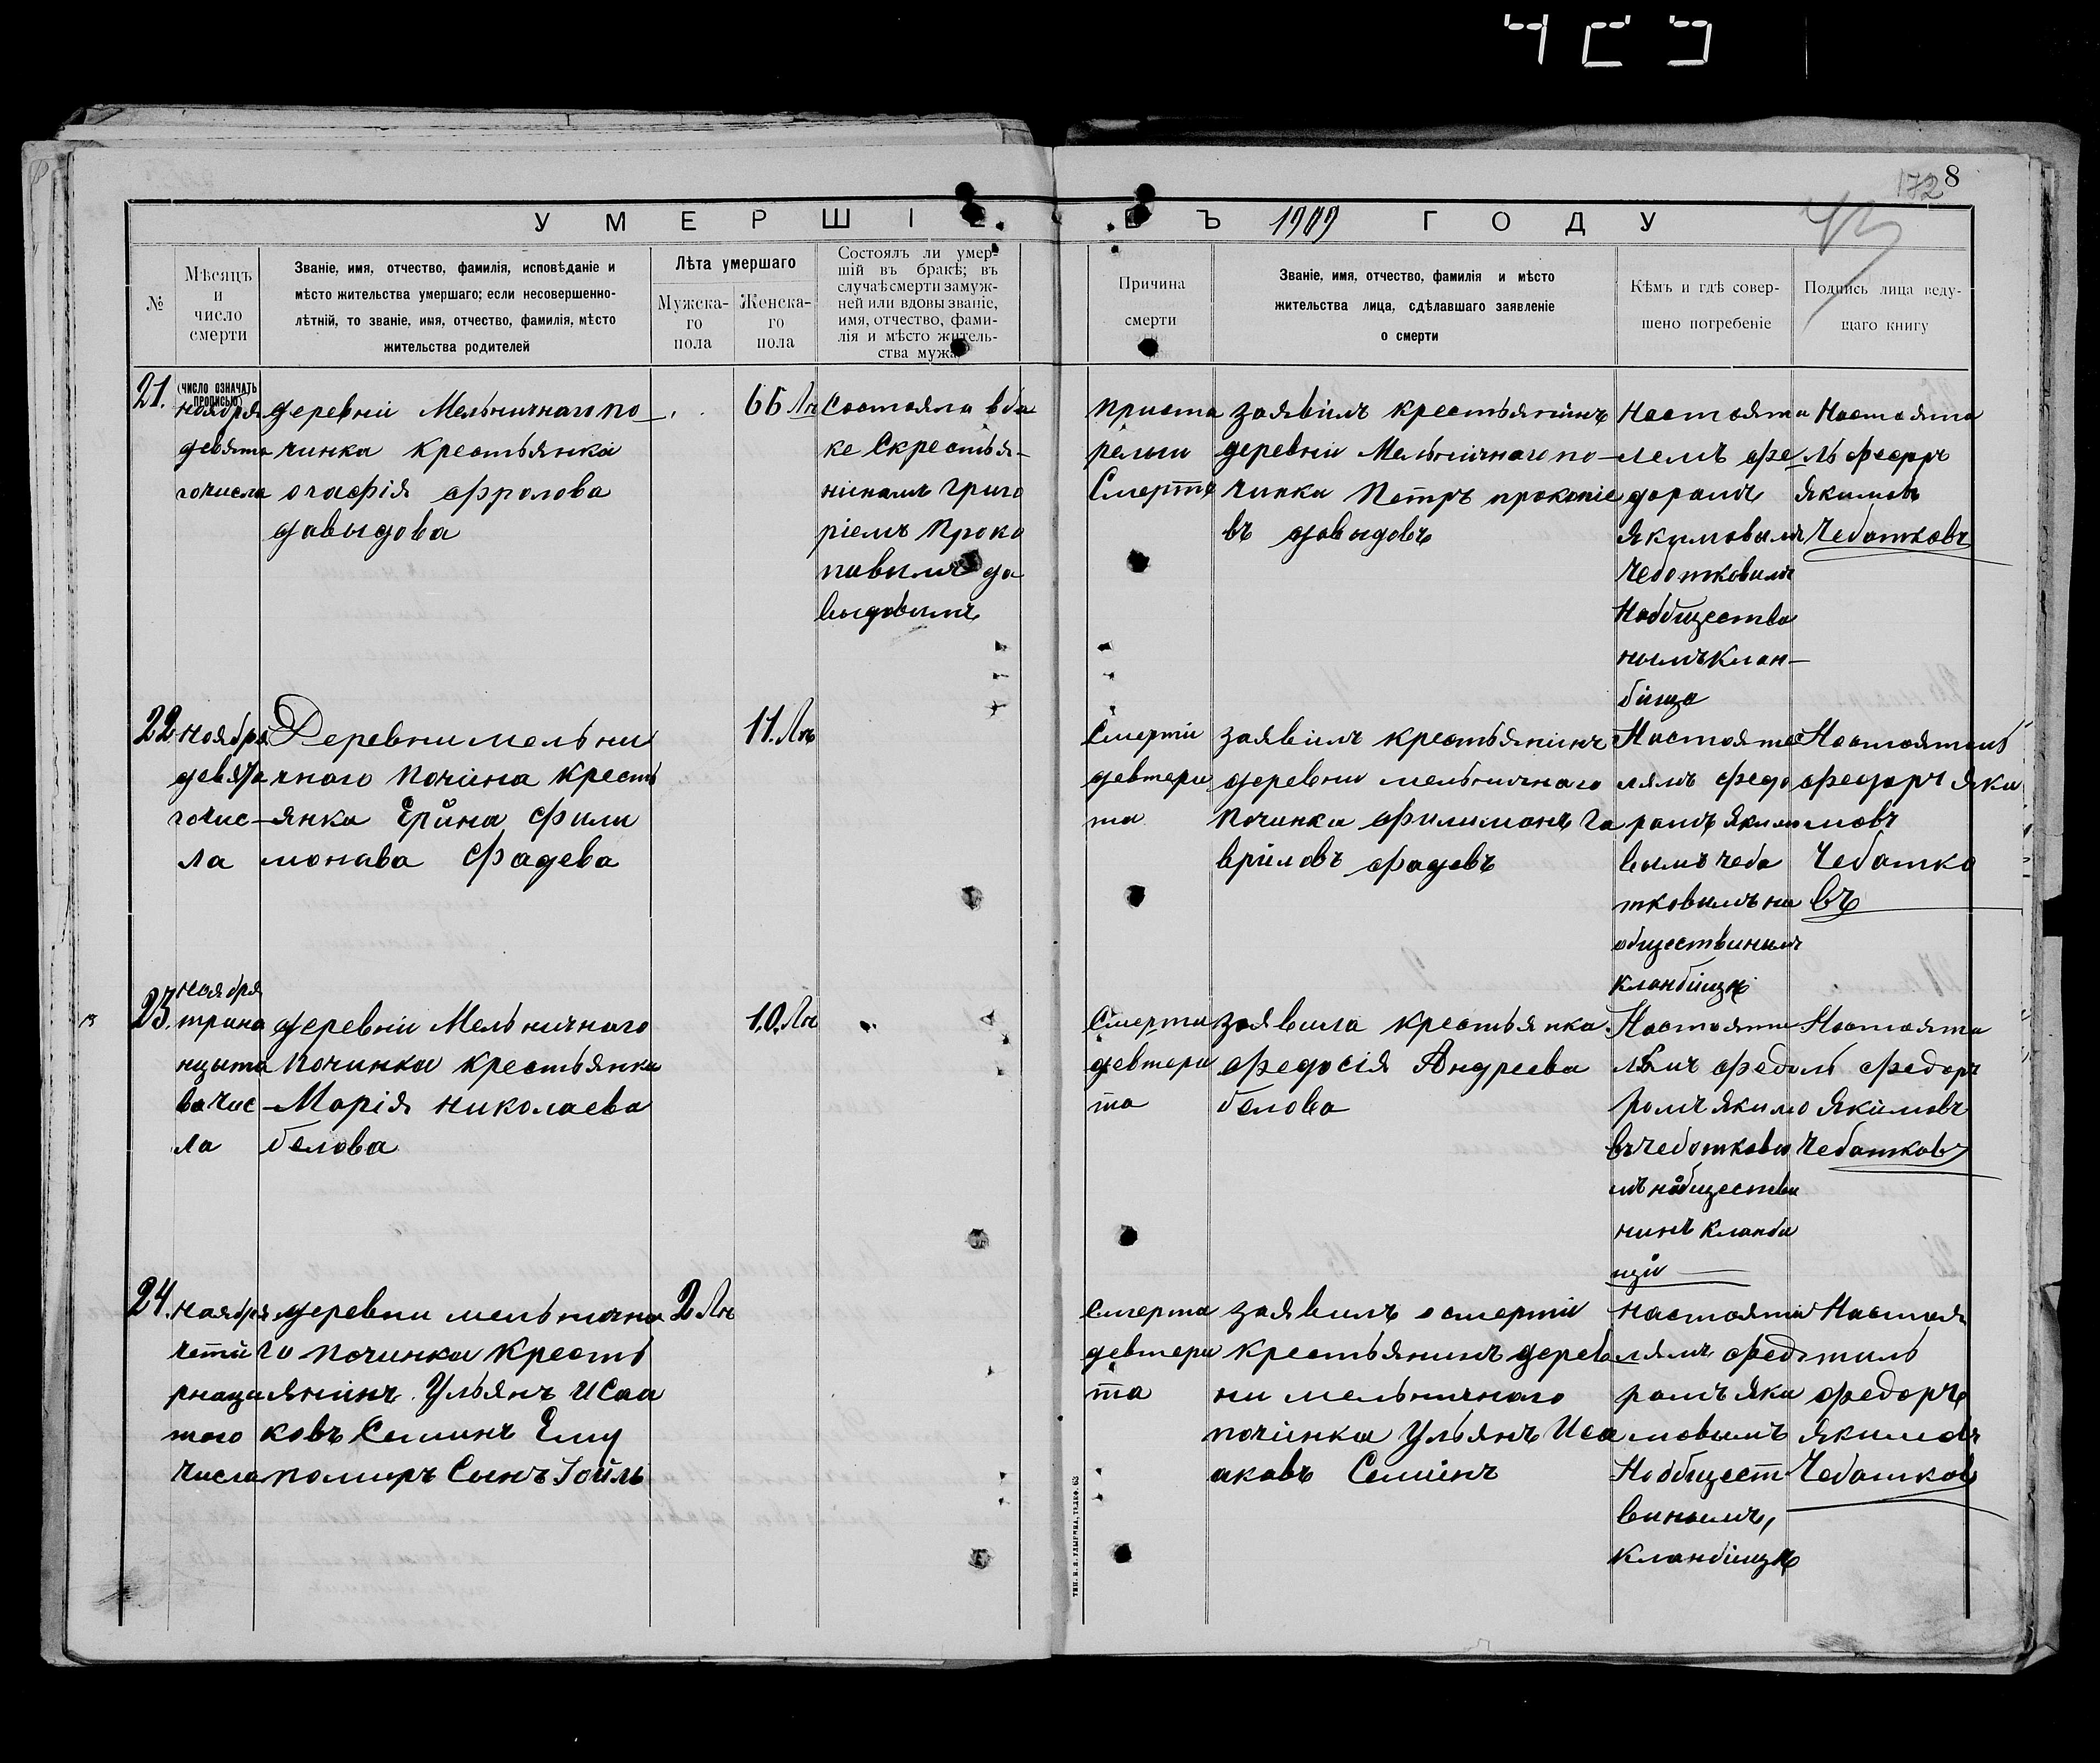 УМЕРШІЕ ВЪ 1909 ГОДУ
172 8
№
Мѣсяцъ
и
число
смерти
Званіе, имя, отчество, фамилія, исповѣданіе и
мѣсто жительства умершаго; если несовершенно-
лѣтній, то званіе, имя, отчество, фамилія, мѣсто
жительства родителей
Лѣта умершаго
Мужска-
го
пола
Женска-
го
пола
Состоялъ ли умер-
шій въ бракѣ; въ
случаѣ смерти замуж-
ней или вдовы званіе,
имя, отчество, фами-
лія и мѣсто житель-
ства мужа
Причина
смерти
Званіе, имя, отчество, фамилія и мѣсто
жительства лица, сдѣлавшаго заявленіе
о смерти
Кѣмъ и гдѣ совер-
шено погребеніе
Подпись лица веду-
щаго книгу
(число означать
прописью)
21.
ноября
девята
гочисла
деревни Мельничнаго по
чинка крестьянка
агафія фролова
давыдова
66 Лѣ
Состояла вба
ке Скрестья-
нинамъ Григо
ріемъ Проко
павымъ да
выдовымъ
приста
релыи
Смерти
заявилъ крестьянинъ
деревни Мельничнаго по-
чинка Петръ прокопіе
въ давыдовъ
Настояте
лемъ фе
дорамъ
Якимовымъ
Чеботковымъ
Наобществе
нымъ клан-
бища
Настояте
ль феоръ
якимовъ
Чебатковъ
22
ноября
девята
гочис-
ла
Деревни мельни
чнаго почина кресть
янка Ерина фили
монава фадева
11. Лѣ
Смерти
девтери
та
заявилъ крестьянинъ
деревни мельничнаго
починка филимонъ Га
вриловъ фадевъ
Настояте
лямъ федо
рамъ якимо
вымъ чеба
тковымъ на
обществинымъ
кланбищѣ
Настоятель
федоръ яки
мовъ
Чебатко
въ
23.
ноября
трина
нцыта
вачис-
ла
деревни Мельничнаго
починка крестьянка
Марія николаева
белова
10. Лѣ
Смерти
девтери
та
заявила крестьянка
федосія Андреева
белова
Настояте
лемъ федо
ромъ якимо
въ чеботковы
мъ наобществе
нинъ кланби
щи
Настояте
ль федоръ
Якимовъ
Чебатковъ
24.
ноября
четы
рнаца
таго
числа
деревни мельнична
го починка кресть
янинъ Ульянъ Исаа
ковъ Семинъ Ему
помиръ Сынъ Іоиль
2 Лѣ
Смерти
девтери
та
заявилъ о смерти
крестьянинъ дерев
ни мельничнаго
починка Ульянъ Иса
аковъ Семинъ
настояте
лямъ федо
рамъ яки
мовымъ
Наобщест
винымъ,
кланбищѣ
Настоя
тиль
федоръ
Якимовъ
Чебатковъ